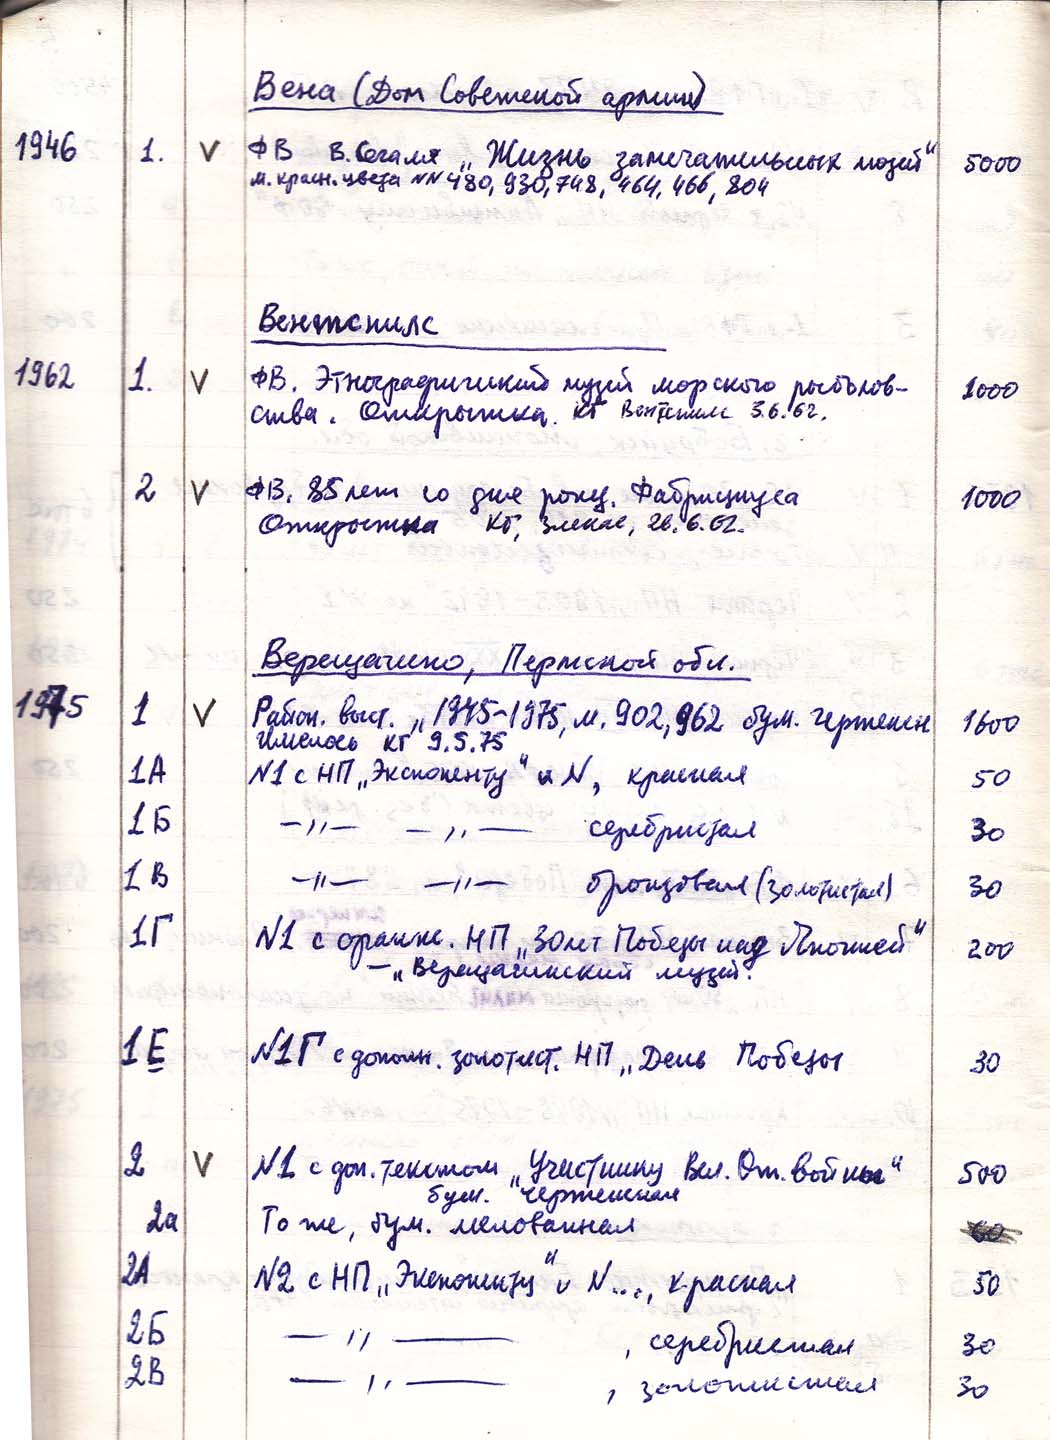 Вена (Дом Советской армии)
1946 1. V ФВ В. Сегаля „Жизнь замечательных людей“ 5000
м. красн. цвета NN 480, 930, 748, 464, 466, 804
Вентспилс
1962 1. V ФВ. Этнографический музей морского рыболов- 1000
ства. Открытка. КГ Вентспилс 3.6.62.
2 V ФВ. 85 лет со дня рожд. Фабрициуса 1000
Открытка КГ, Злекас, 26.6.62.
Верещагино, Пермской обл.
1975 1 V Район. выст. „1945-1975, м. 902, 962 бум. чертежн 1600
Имелось КГ 9.5.75
1А N1 с НП „Экспоненту“ и N, красная 50
1Б —〃— —〃— серебристая 30
1В —〃— —〃— бронзовая (золотистая) 30
1Г N1 с оранж. НП „30 лет Победы над Японией“ 200
— „Верещагинский музей.
1Е N1Г с дополн. золотист. НП „День Победы 30
2 V N1 с доп. текстом „Участнику Вел. От. войны“ 500
бум. чертежная
2а То же, бум. мелованная
2А N2 с НП „Экспоненту“ и N..., красная 50
2Б —〃— , серебристая 30
2В —〃— , золотистая 30